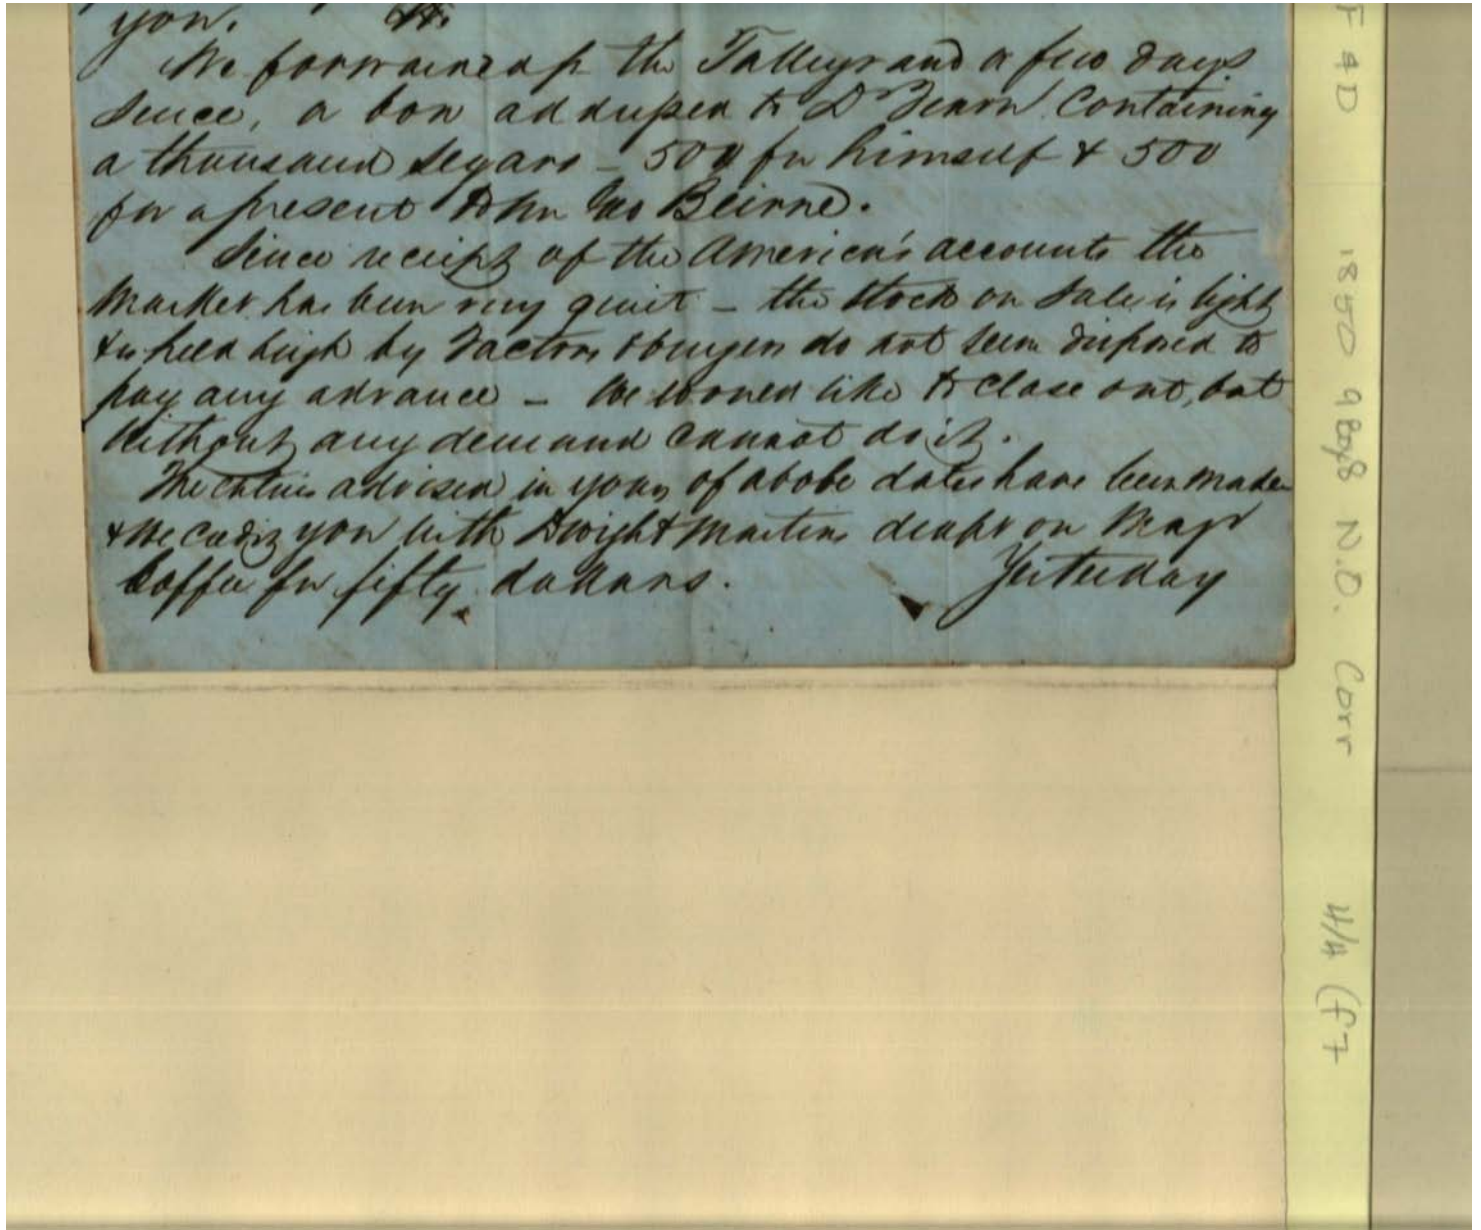 you.
We forwarded pr the Talleyrand a few days
since, a box addressed to Dr Fearn Containing
a thousand Segars – 500 for himself & 500
for a present to Geo Beirne.
Since receipt of the America's accounts the
Market has been very quiet – the Stock on Sale is light
& is held high by Factors & buyers do not seem disposed to
pay any advance – We would like to close out, but
without any demand cannot do it.
The entries advised in yours of above dates have been made
& We credit you with Dwight & Martins draft on
for fifty dollars. Yesterday
F & D 1850 N.O. Corr 4/4 (f7